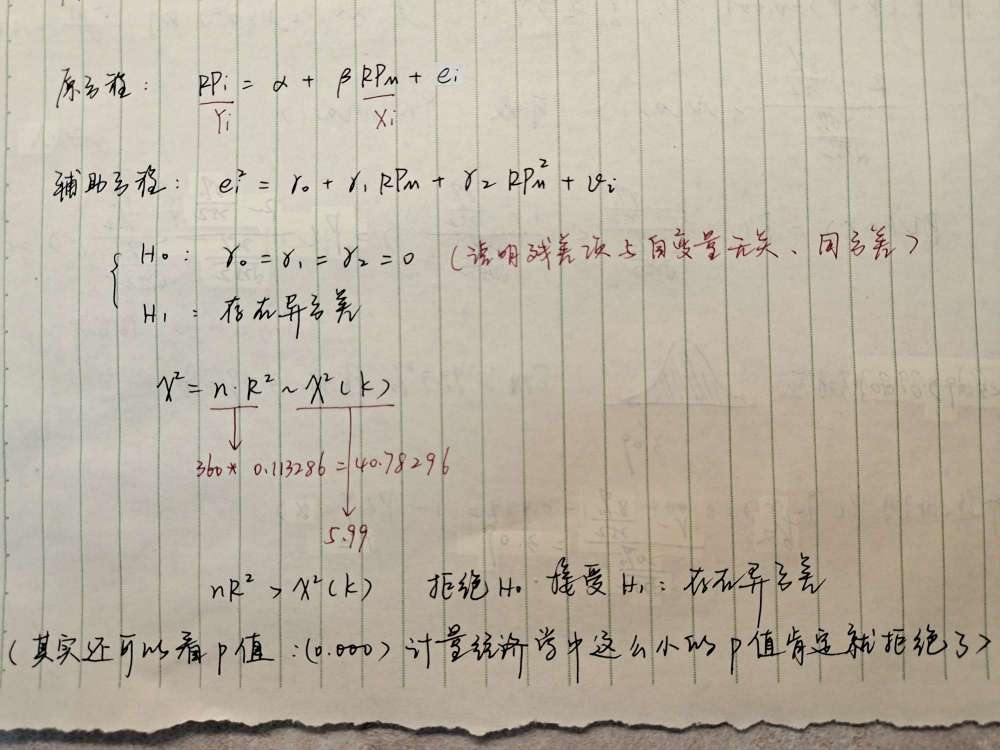 原方程: RPi = α + β RPm + ei
Yi Xi
辅助方程: ei² = γ0 + γ1 RPm + γ2 RPm² + υi
H0: γ0 = γ1 = γ2 = 0 (说明残差项与自变量无关、同方差)
H1: 存在异方差
χ² = n·R² ~ χ²(k)
360* 0.113286 = 40.78296
5.99
nR² > χ²(k) 拒绝H0 接受H1: 存在异方差
(其实还可以看p值:(0.000)计量经济学中这么小的p值肯定就拒绝了)